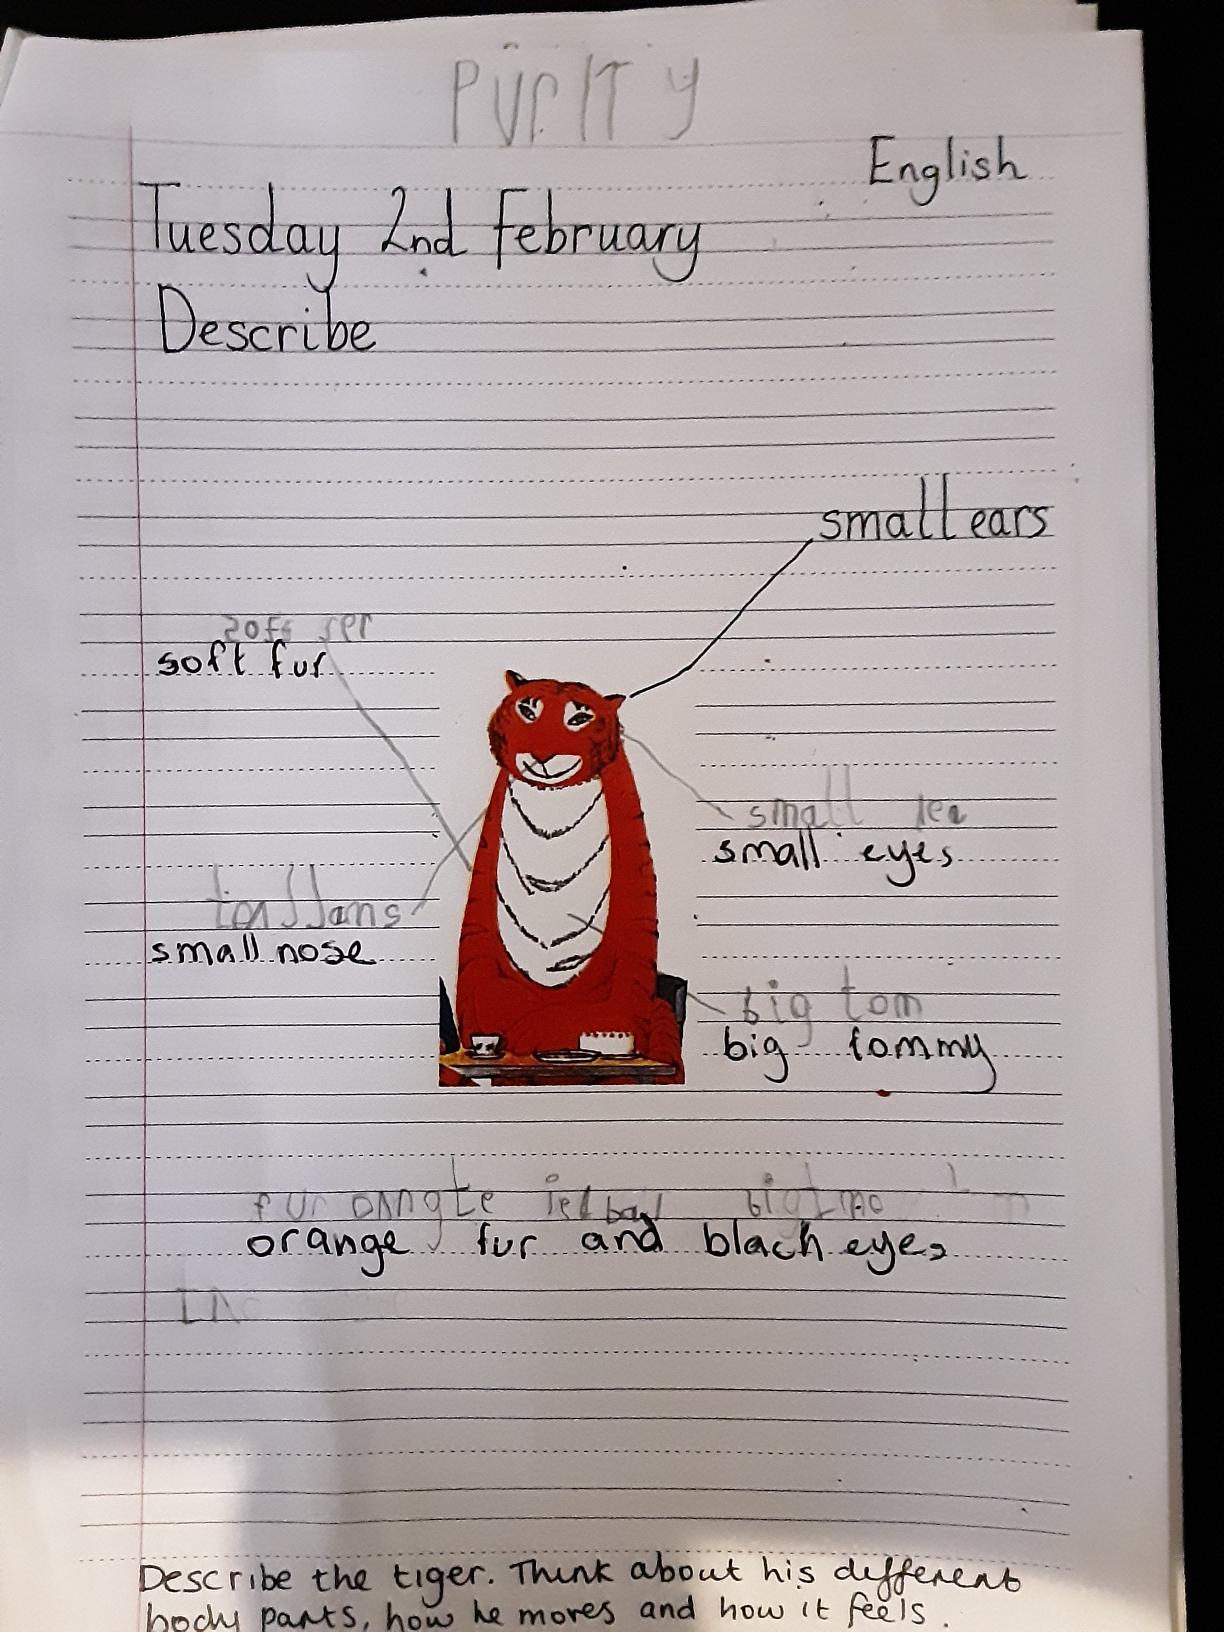 PURITY
English
Tuesday 2nd February
Describe
small ears
soft fur
small
small eyes
small nose
big tom
big tommy
fur
orange fur and black eyes
Describe the tiger. Think about his different
body parts, how he moves and how it feels.